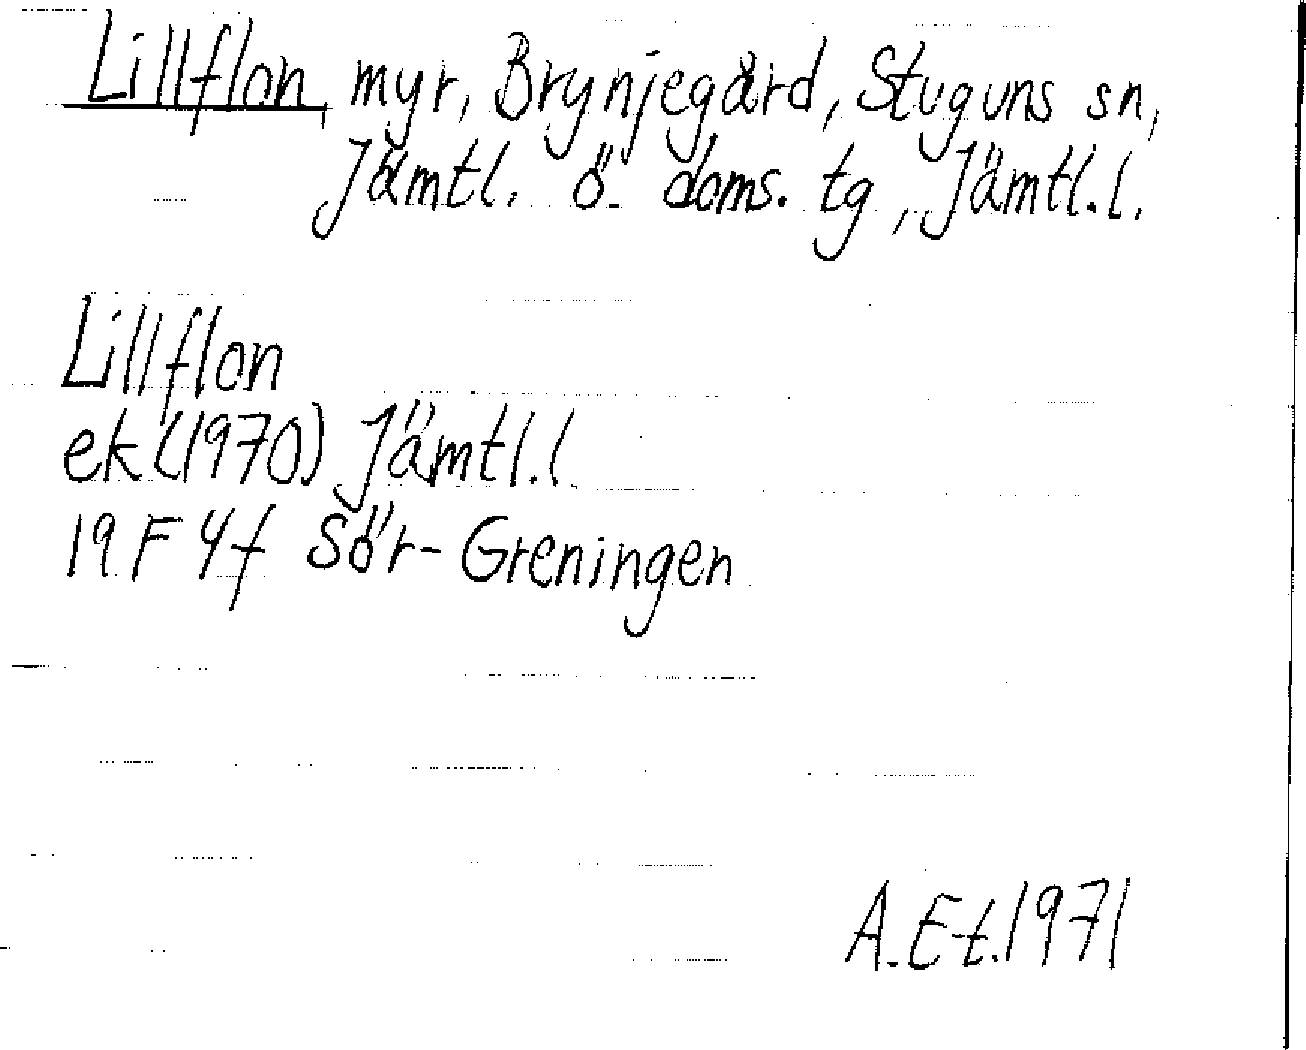 Lillflon, myr, Brynjegård, Stuguns sn,
Jämtl. ö. doms. tg, Jämtl.l.
Lillflon
ek (1970) Jämtl.l.
19 F 4f Sör-Greningen
A.Et.1971